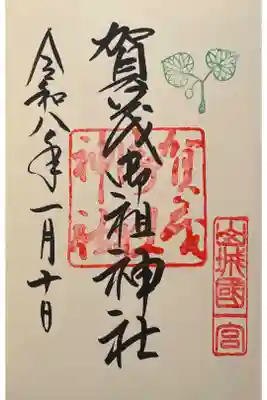 山城國一宮
賀茂御祖神社
賀茂御祖神社
令和八年一月十日